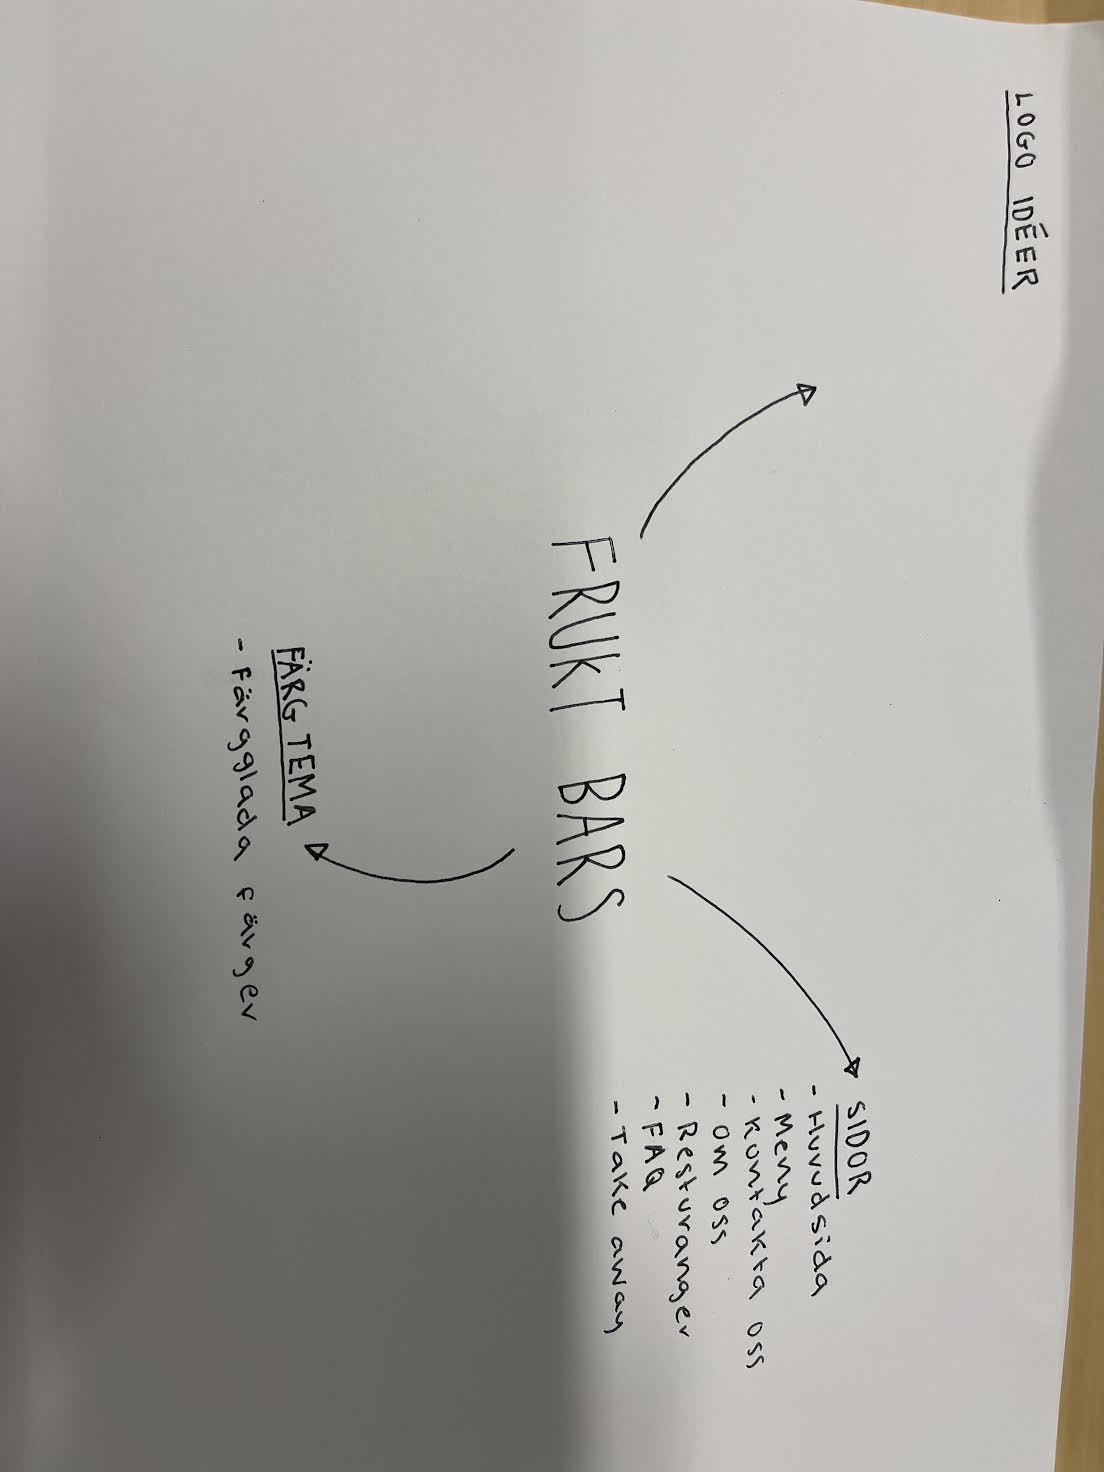 LOGO IDÉER
FRUKT BARS
SIDOR
- Huvudsida
- Meny
- Kontakta oss
- Om oss
- Resturanger
- FAQ
- Take away
FÄRG TEMA
- Färgglada färger